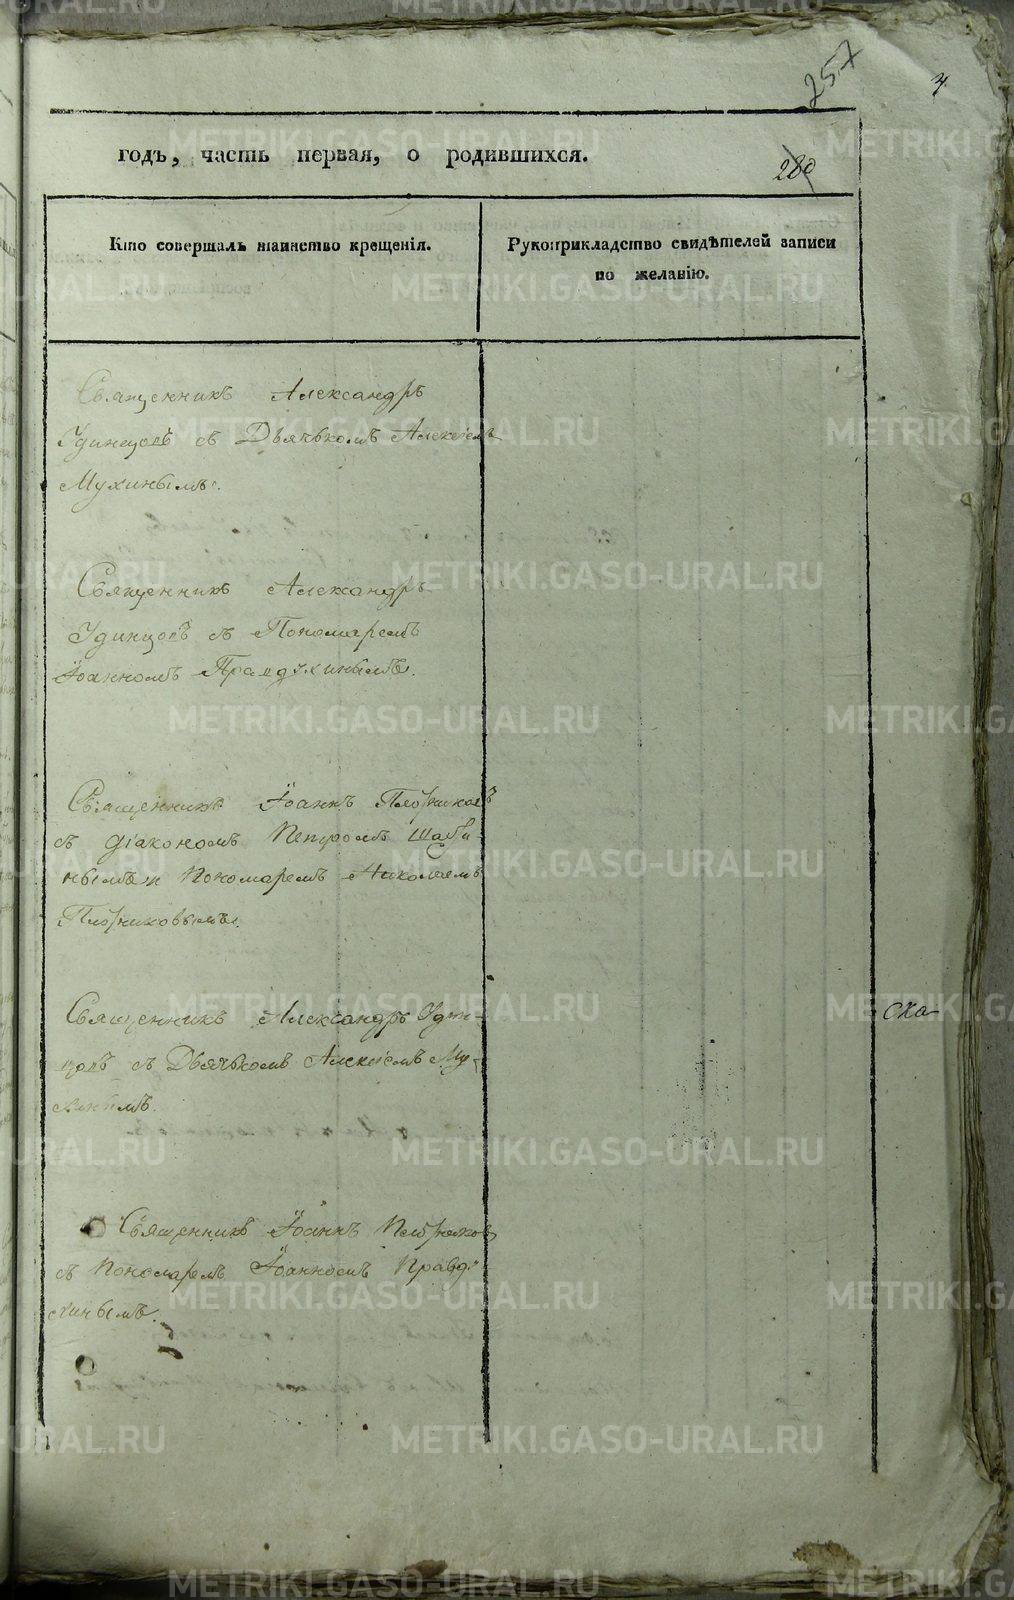 257
годъ, часть первая, о родившихся.
280
Кто совершалъ таинство крещенія.
Рукоприкладство свидѣтелей записи
по желанію.
Священникъ Александръ
Удинцовъ съ Дьячькомъ Алексіемъ
Мухинымъ.
Священникъ Александръ
Удинцовъ съ Пономаремъ
Іоанномъ Правдухинымъ.
Священникъ Іоаннъ Плотниковъ
съ діакономъ Петромъ Шаби-
нымъ и пономаремъ Николаемъ
Плотниковымъ.
Священникъ Александръ Удин-
цовъ съ Дьячькомъ Алексіемъ Му-
хинымъ.
Священникъ Іоаннъ Плотников
съ пономаремъ Іоанномъ Правду-
хинымъ.
METRIKI.GASO-URAL.RU